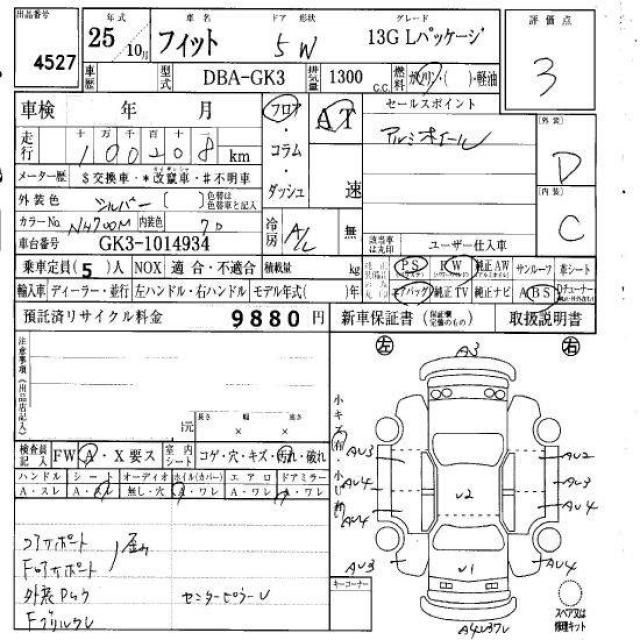 出品番号 年式 車名 ドア 形状 グレード 評価点
4527 25年 10月 フィット 5W 13G Lパッケージ 3
車歴 型式 DBA-GK3 排気量 1300 C.C. 燃料 ガソリン・( )・軽油
車検 年 月 フロア・コラム・ダッシュ AT 速 セールスポイント
アルミホイール
走行 十 万 千 百 十 一
100208 km
[外装] D
メーター歴 $交換車・*改竄車・#不明車
[内装] C
外装色 シルバー ( ) 色替は色替車名と記入
カラーNo. NH700M 内装色
冷房 A/C 無
車台番号 GK3-1014934
該当車は丸印 ユーザー仕入車
乗車定員(5)人 NOX 適合・不適合 積載量 kg
PS PW 純正AW サンルーフ 革シート
輸入車 ディーラー・並行 左ハンドル・右ハンドル モデル年式( )年
エアバッグ 純正TV 純正ナビ ABS Dチューナー
預託済リサイクル料金 9880円 新車保証書 (保証欄定機のもの) 取扱説明書
注意事項(出品店記入)
左 右
A3
小キズ 有 小凹 有
長さ 幅 高さ
元 × ×
検査員記入 FW A・X要ス 室内シート コゲ・穴・キズ・汚れ・破れ
ハンドル シート オーディオ ホイル(カバー) エアロ ドアミラー
A・スレ A・スレ 無し・穴 A・ワレ A・ワレ A・ワレ
AU3 AU2
AU4 U2 A3
AU4 AU4
AU3 U1 AU4
コアサポート
歪み
外装
センターピラーU
Fグリルワレ
キーコーナー
スペア又は修理キット